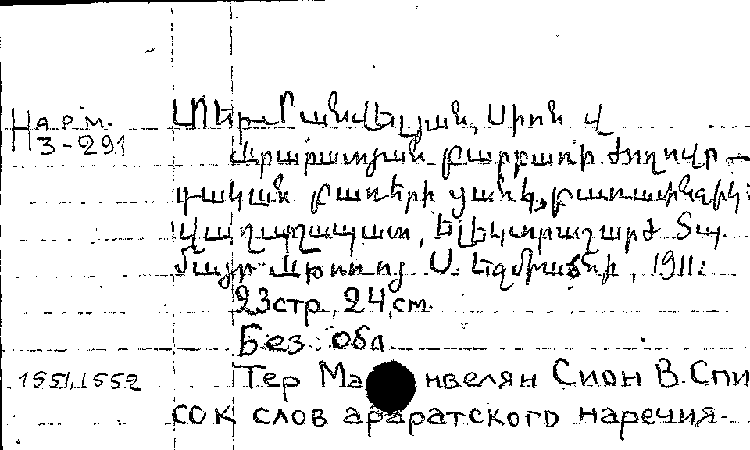 Нарм.
3-291
Տեր-Մանվելյան, Սիոն Վ
Արարատյան բարբառի ժողովր-
դական բառերի ցանկ, բառատինգիկ:
Վաղարշապատ, Էլեկտրաշարժ Տպ.
մայր Աթոռոց Ս. Եջմիածնի, 1911:
23стр, 24,cm.
Без. обл
1551,1552
Тер Ма нвелян Сион В. Спи
сок слов араратского наречия.